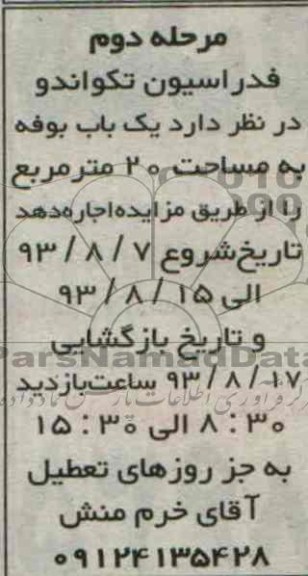 مرحله دوم
فدراسیون تکواندو
در نظر دارد یک باب بوفه
به مساحت ۲۰ مترمربع
را از طریق مزایده‌اجاره‌دهد
تاریخ‌شروع ۹۳/۸/۷
الی ۹۳/۸/۱۵
و تاریخ بازگشایی
ParsNamadData
۹۳/۸/۱۷ ساعت‌بازدید
۸:۳۰ الی ۱۵:۳۰
به جز روزهای تعطیل
آقای خرم منش
۰۹۱۲۴۱۳۵۴۲۸